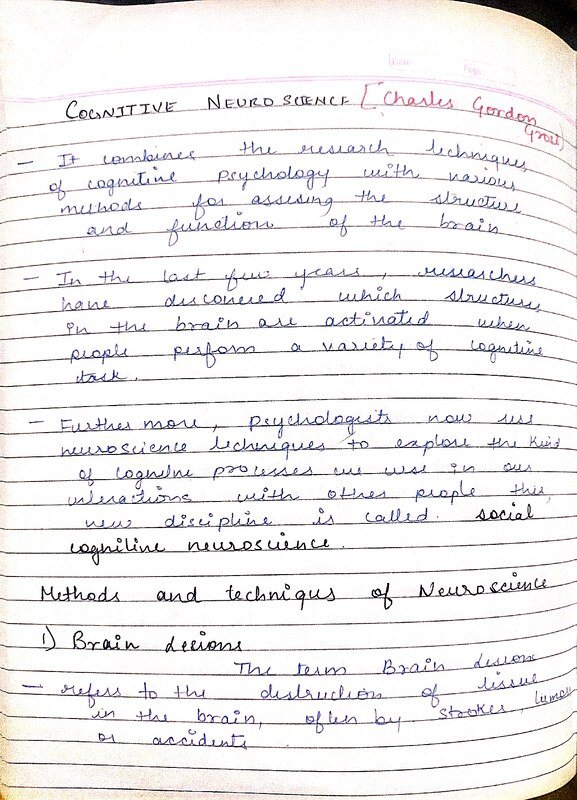 Date
Page
COGNITIVE NEUROSCIENCE [Charles Gordon
Gross)
– It combines the research techniques
of cognitive psychology with various
methods for assesing the structure
and function of the brain
– In the last few years, researchers
have discovered which structures
in the brain are activated when
people perform a variety of cognitive
task.
– Further more, psychologists now use
neuroscience techniques to explore the kind
of cognitve processes we use in our
interactions with other people this
new discipline is called social
cognitive neuroscience.
Methods and techniqus of Neuroscience
1) Brain lesions
The term Brain lesions
– refers to the distruction of tissue
in the brain, often by strokes, tumors
or accidents